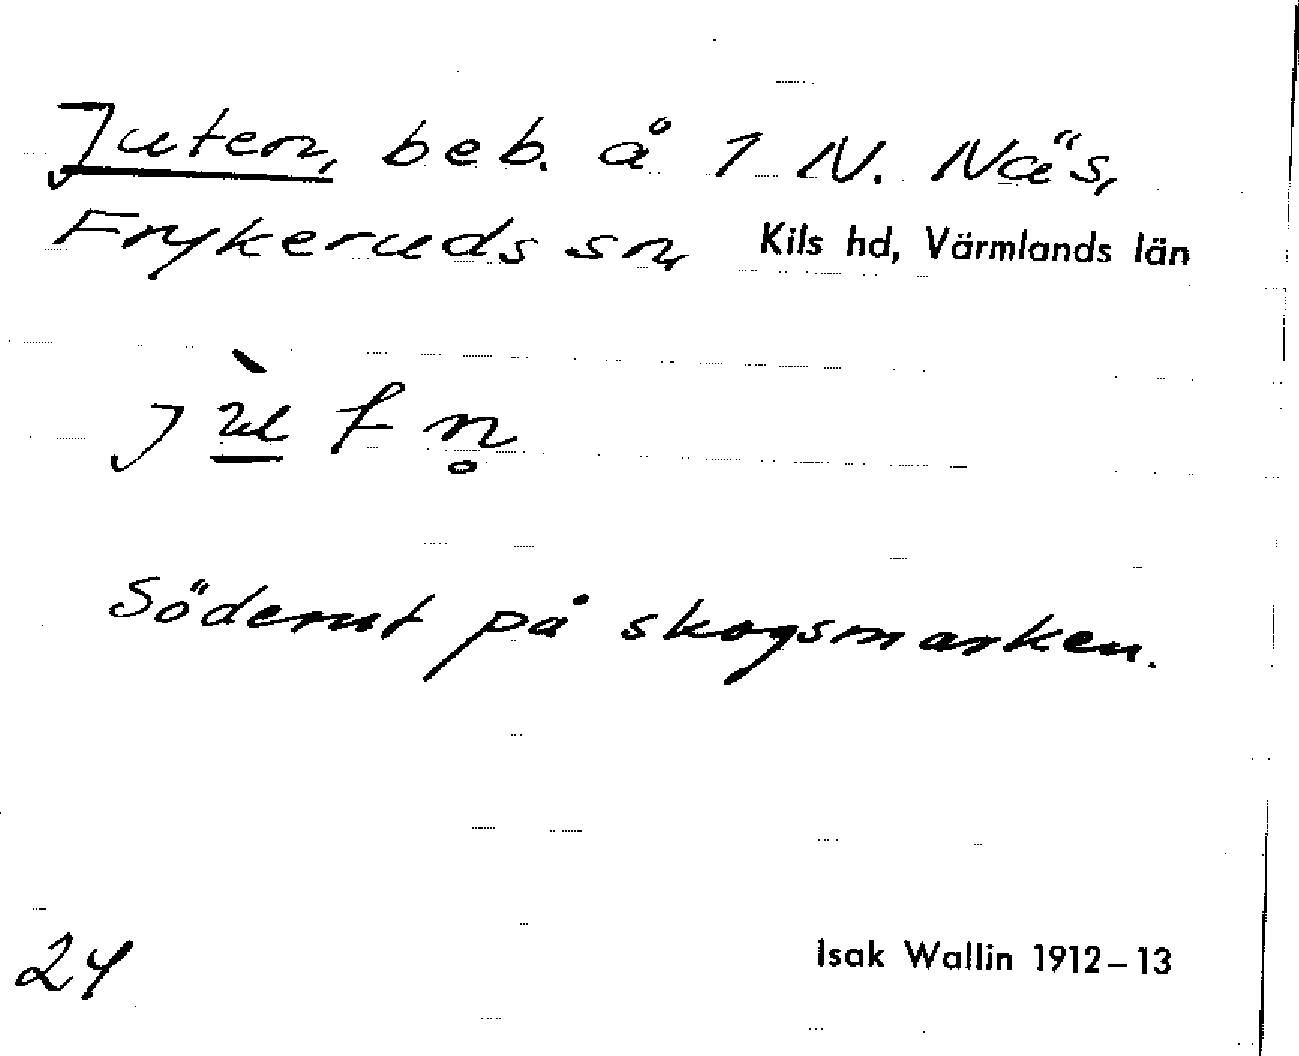 Juten, beb. å 1 N. Näs,
Frykeruds sn, Kils hd, Värmlands län
Söderut på skogsmarken.
24
Isak Wallin 1912–13